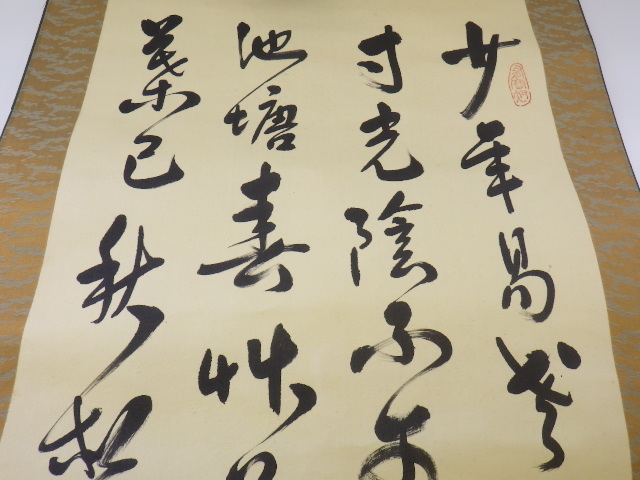 少年易老
寸光陰不
池塘春艸
葉已秋